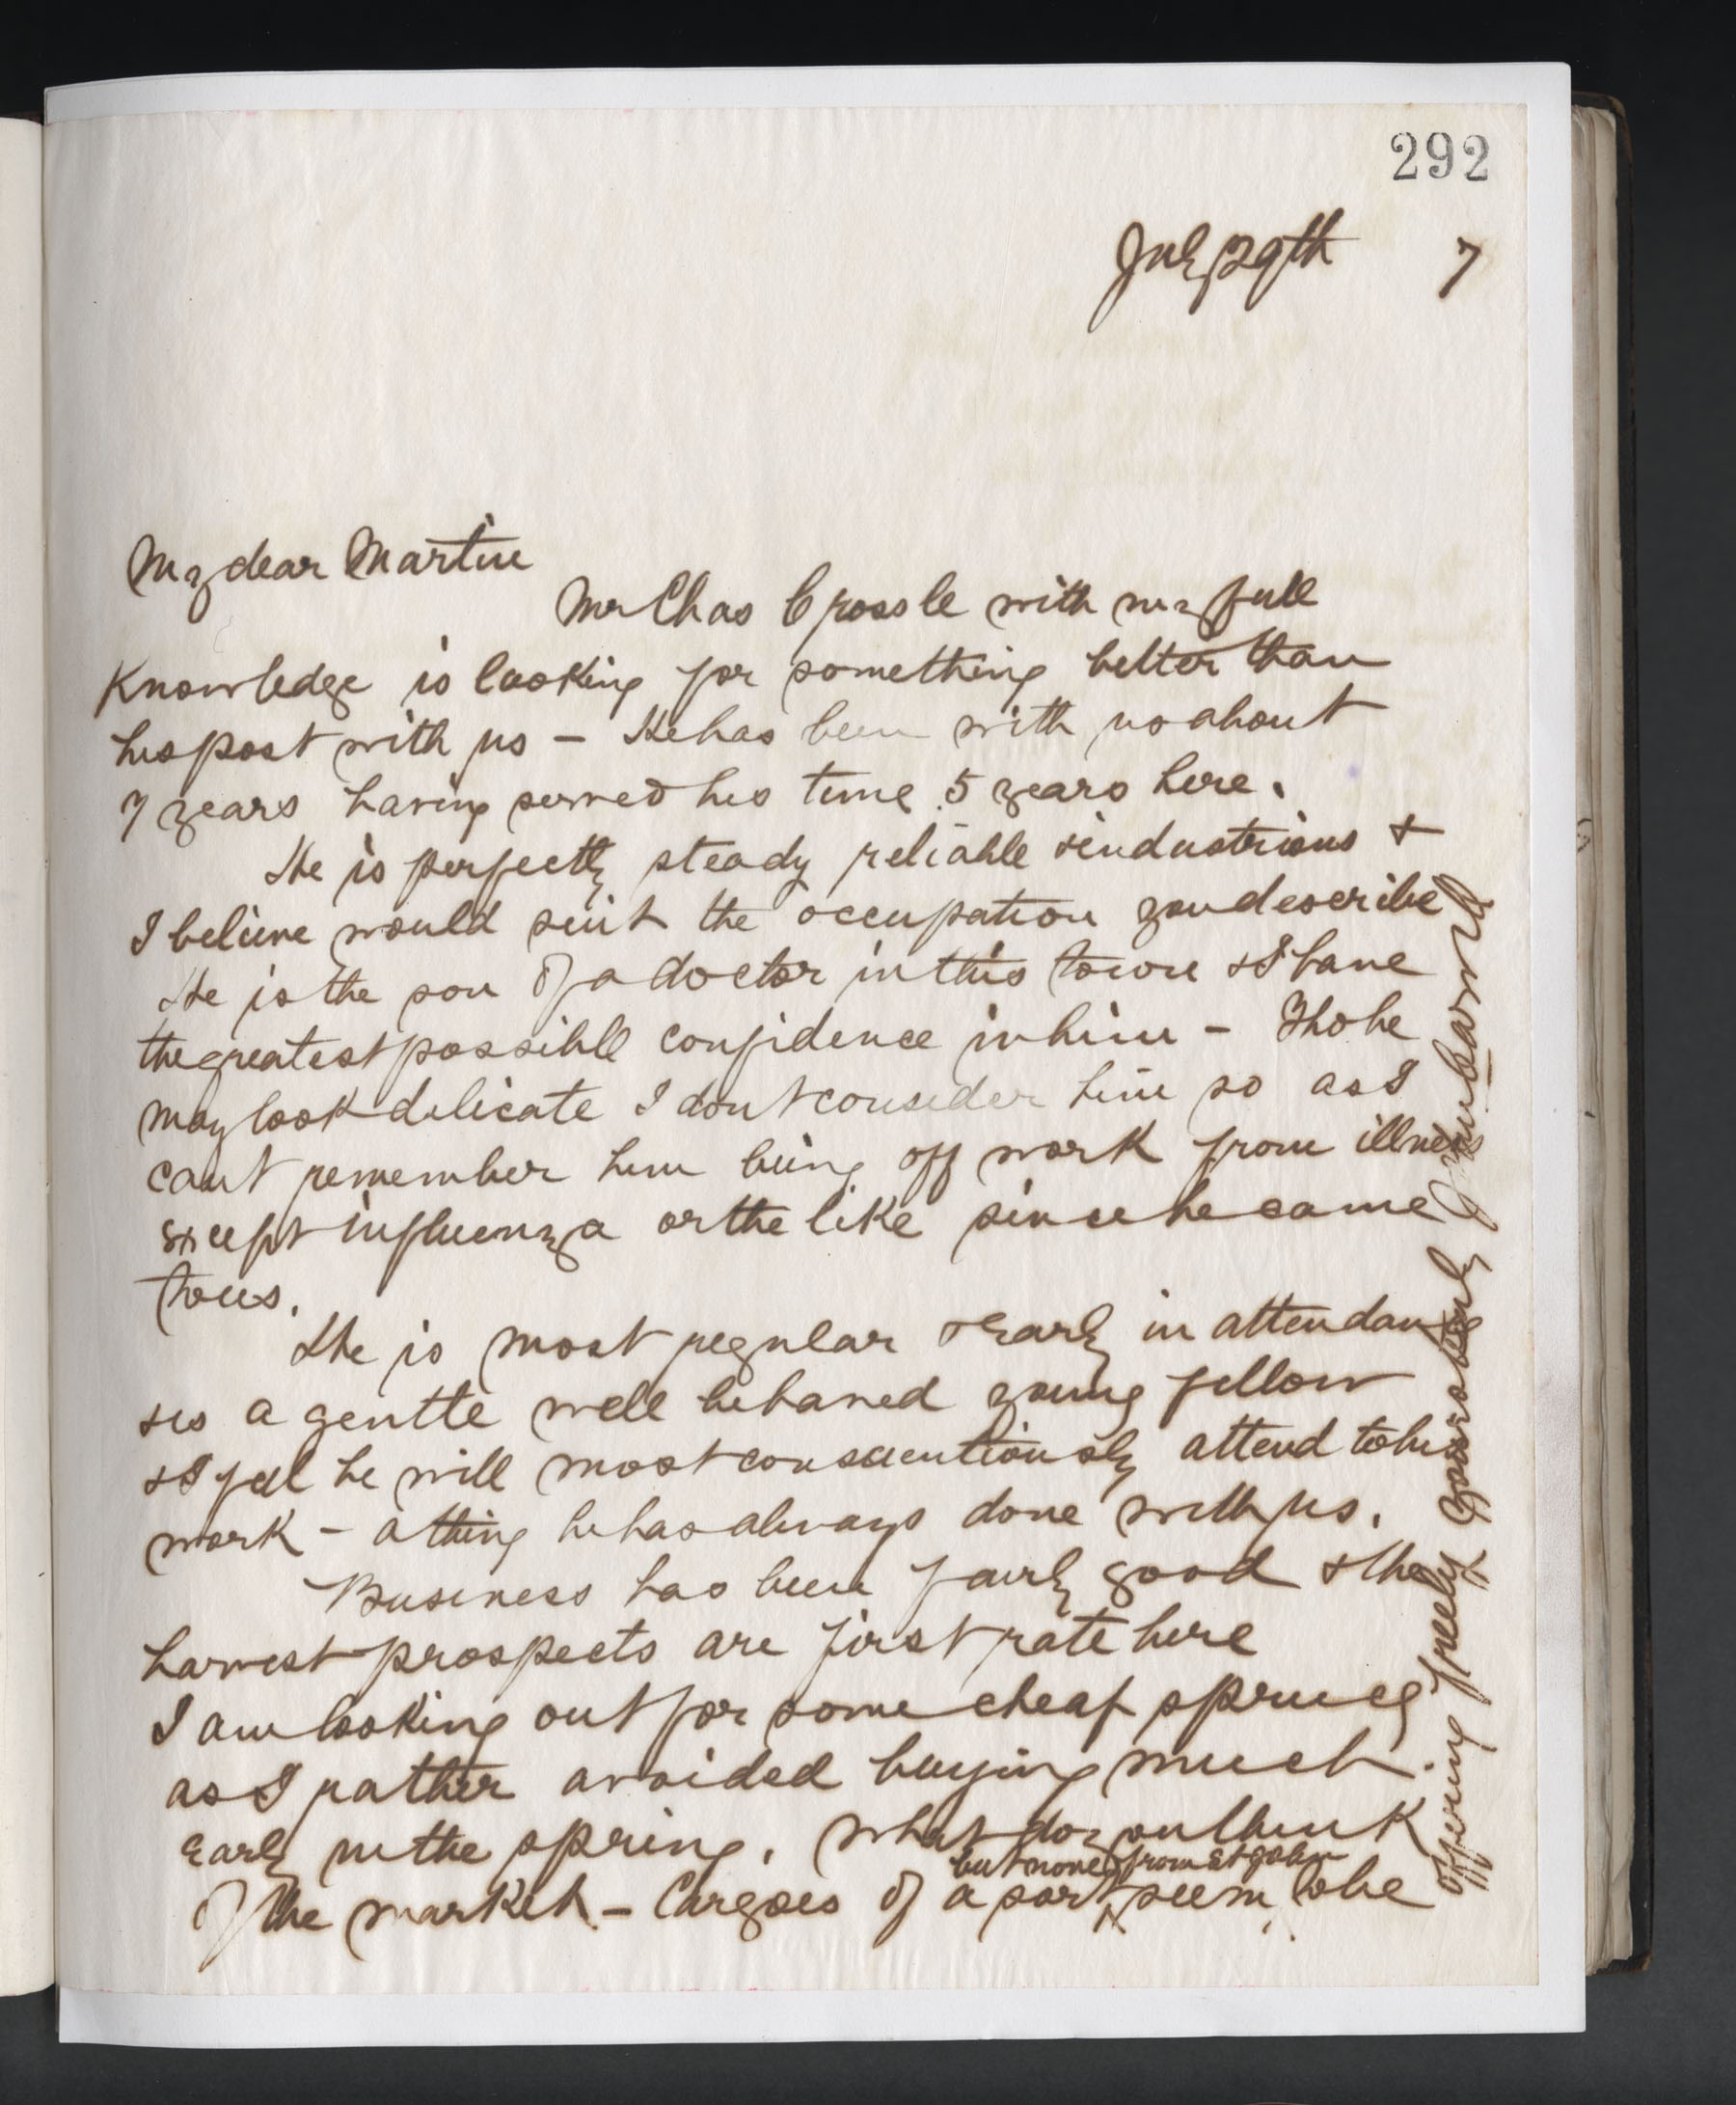 292
July 29th 7
My dear Martin
Mr Chas Crossle with my full
Knowledge is looking for something better than
his post with us - He has been with us about
7 years having served his time 5 years here.
He is perfectly steady reliable & industrious &
I believe would suit the occupation you describe
He is the son of a doctor in this town & I have
the greatest possible confidence in him - Tho he
may look delicate I dont consider him so as I
cant remember him being off work from illness
except influenza or the like since he came
to us.
He is most regular & early in attendance
& is a gentle well behaved young fellow
& I feel he will most conscientiously attend to his
work - a thing he has always done with us.
Business has been fairly good & the
harvest prospects are first rate here
I am looking out for some cheap spruce
as I rather avoided buying much
early in the spring. What do you think
but none from St John
of the market - Cargoes of a sort seem to be
offering freely yours truly